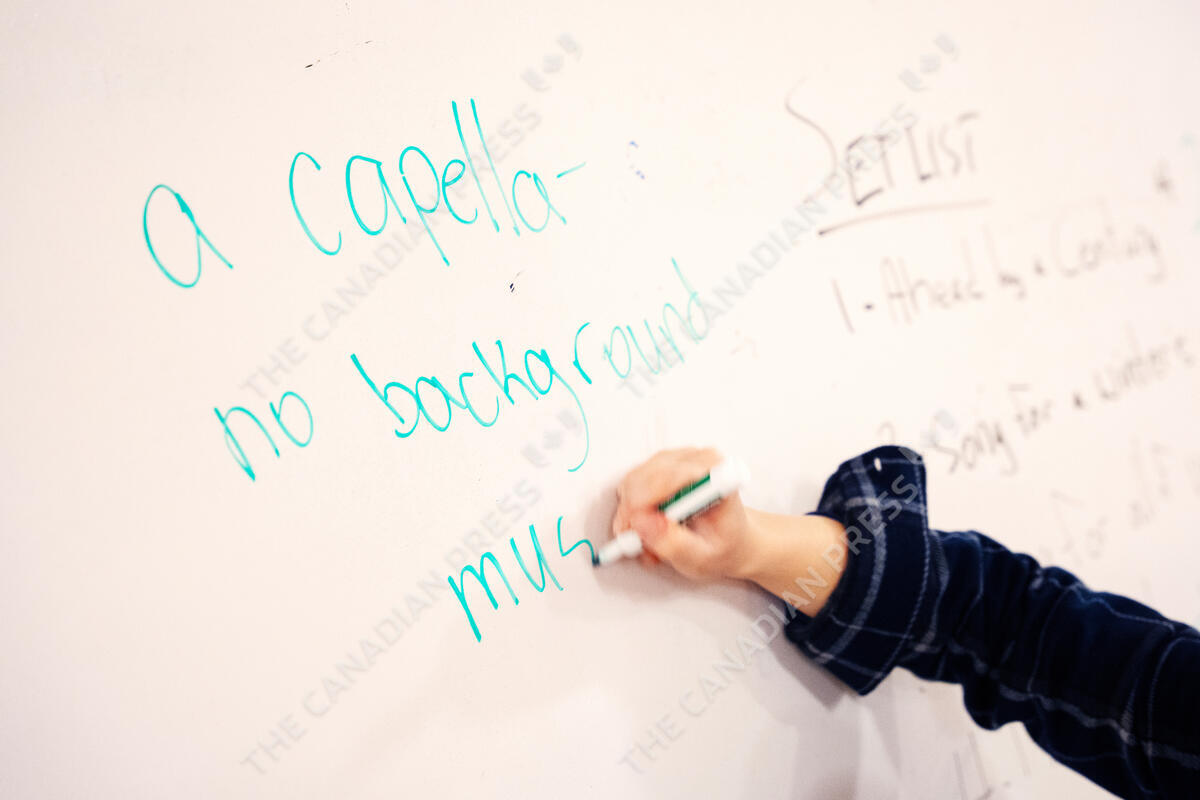 a capella -
no background
mus
SETLIST
1 - Ahead by a Century
Song for a winter
for
THE CANADIAN PRESS
THE CANADIAN PRESS
THE CANADIAN PRESS
THE CANADIAN PRESS
THE CANADIAN PRESS
THE CANADIAN PRESS